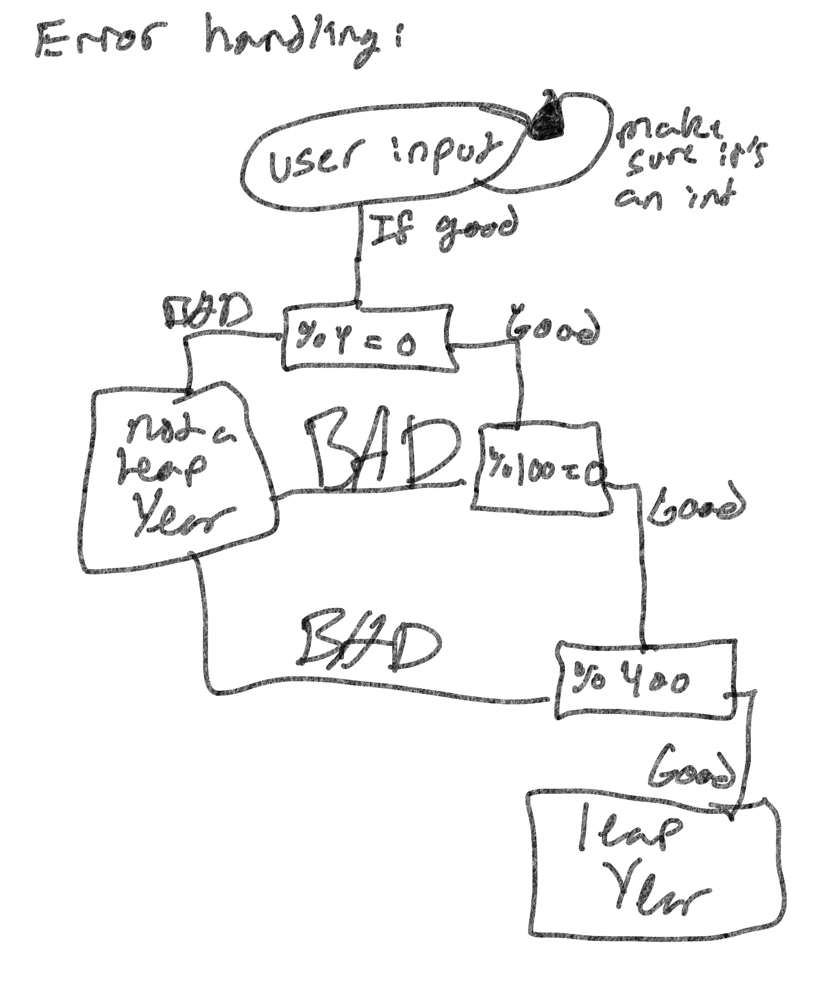 Error handling:
user input
make
sure it's
an int
If good
BAD
%4=0
Good
not a
leap
Year
BAD
%100=0
Good
BAD
%400
Good
leap
Year